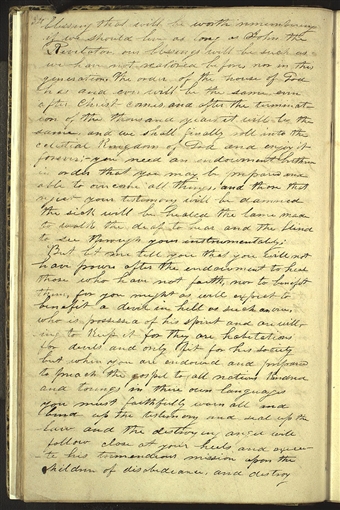 34 blessing that will be worth remembering
if we should live as long as John the
Revelator our blessings will be such as
we have not realized before, nor in this
generation the order of the house of God
has and ever will be the same even
after Christ comes and after the terminat
ion of the thousand years it will be the
same, and we shall finally roll into the
celestial Kingdom of God and enjoy it
forever: you need an endowment brethren
in order that you may be prepared and
able to overcome all things, and those that
reject your testimony will be damned
the sick will be healed the lame made
to walk the deaf to hear and the blind
to see through your instrumentality;
But let me tell you that you will not
have power after the endowment to heal
those who have not faith, nor to benefit
them, for you might as well expect to
benefit a devil in hell as such an one,
who is possessed of his spirit and are will
ing to keep it for they are habitations
for devils and only fit for his society
but when you are endowed and prepared
to preach the gospel to all nations kindred
and toungs in there own languages
you must faithfully warn all and
bind up the testimony and seal up the
law and the destroying angel will
follow close at your heels and execu-
te his tremendious mission upon the
children of disobediance, and destroy